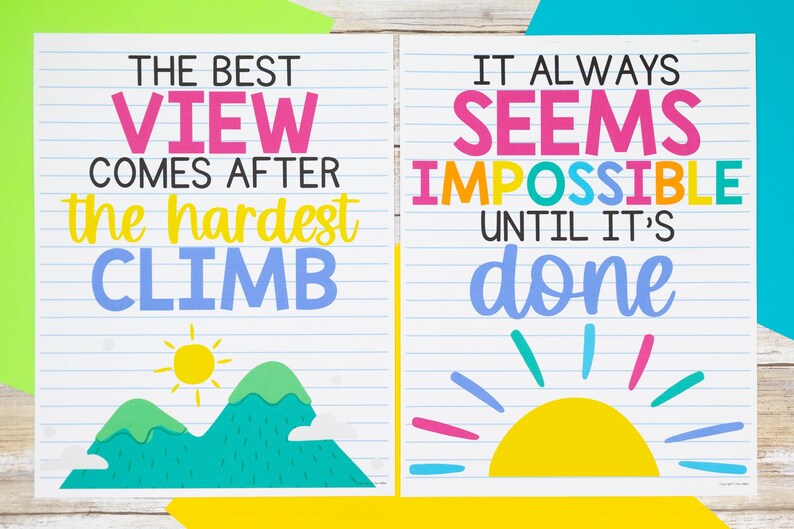 THE BEST
VIEW
COMES AFTER
the hardest
CLIMB
IT ALWAYS
SEEMS
IMPOSSIBLE
UNTIL IT'S
done